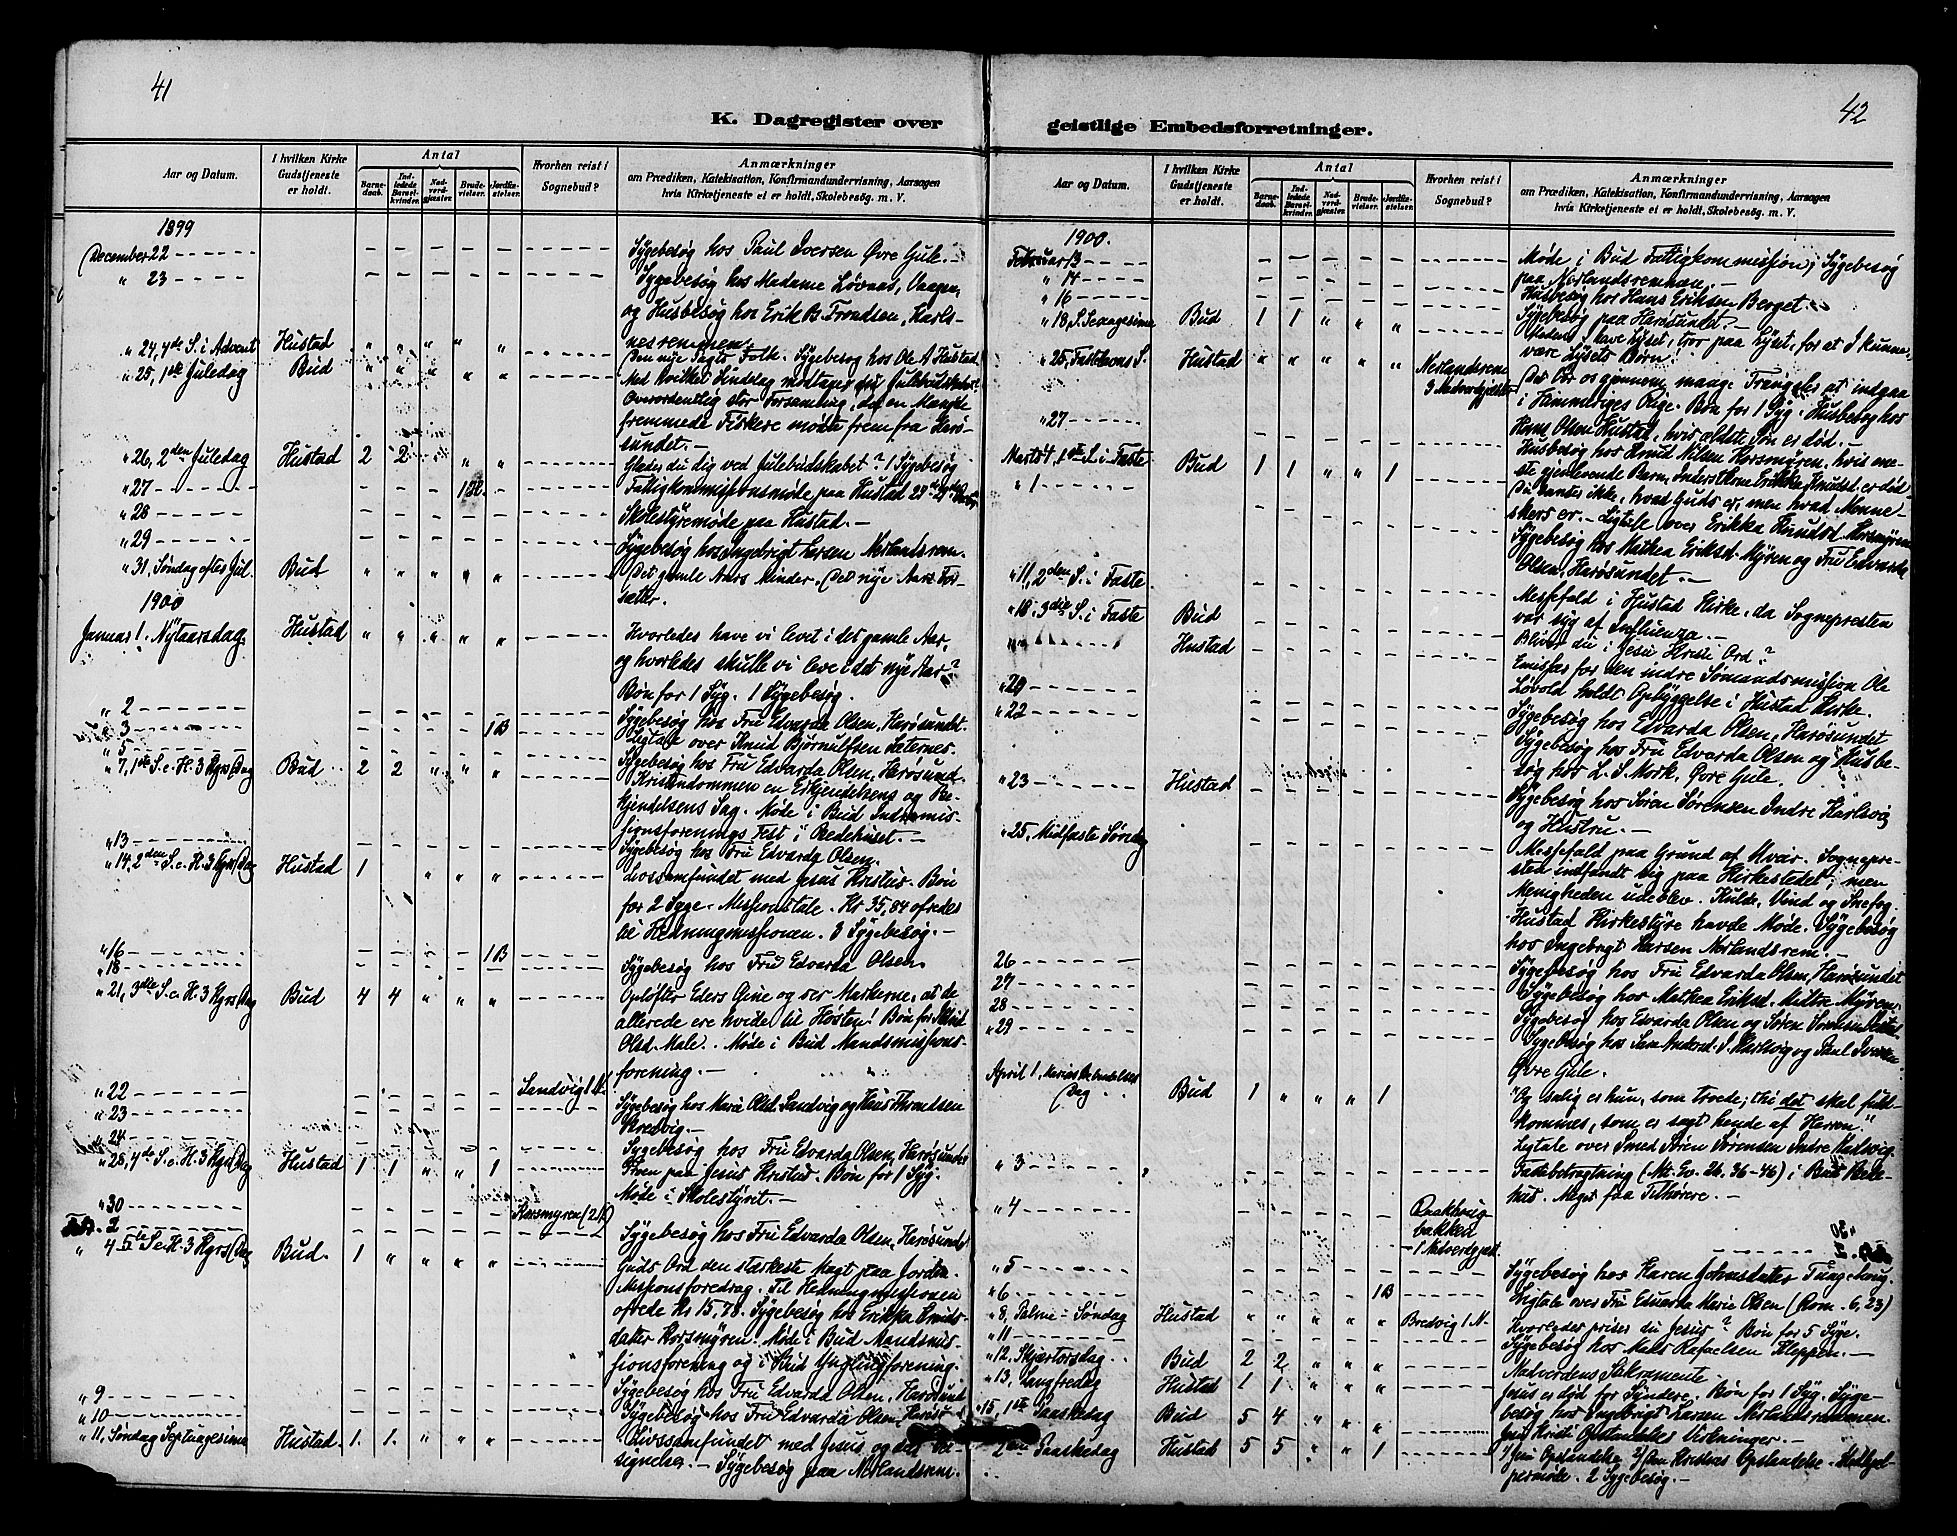 41
K. Dagregister over
Aar og Datum.
I hvilken Kirke Gudstjeneste er holdt.
Antal
Barnedaab.
Indledede Barselkvinder.
Nadverdgjæster.
Brudevielser.
Jordfæstelser.
Hvorhen reist i Sognebud?
Anmærkninger
om Prædiken, Katekisation, Konfirmandundervisning, Aarsagen
hvis Kirketjeneste ei er holdt, Skolebesøg. m. V.
1899
December 22 Sygebesøg hos Paul Iversen Øvre Gule.
" 23 Sygebesøg hos Madame Løvaas, Vaagen,
og Husbesøg hos Erik B. Trondsen, Karls-
nesremmen.
" 24, 4de S. i Advent Hustad " " " " " Den nye Pagts Folk. Sygebesøg hos Ole A. Hustad.
" 25, 1ste Juledag Bud " " " " " Med hvilket Sindelag modtager du Julebudskabet?
Overordentlig stor Forsamling, da en Mængde
fremmede Fiskere mødte frem fra Harø-
sundet.
" 26, 2den Juledag Hustad 2 2 " " " Glæder du dig ved Julebudskabet? 1 Sygebesøg
" 27 Fattigkommissionsmøde paa Hustad
" 28 Skolestyremøde paa Hustad.
" 29 Sygebesøg hos Ingebrigt Larsen Nerlandsrem.
" 31, Søndag efter Jul. Bud " " " " " Det gamle Aars Minder. Det nye Aars For-
sætter.
1900
Januar 1. Nytaarsdag Hustad " " " " " Hvorledes have vi levet i det gamle Aar,
og hvorledes skulle vi leve i det nye Aar?
Bøn for 1 Syg. 1 Sygebesøg.
" 2 Sygebesøg hos Fru Edvarda Olsen, Harøsundet.
" 3 1 B Ligtale over Knud Bjørnulfsen Sæternes.
" 5 Sygebesøg hos Fru Edvarda Olsen, Harøsund.
" 7, 1ste S. e. H. 3 Kgrs Dag Bud 2 2 " " " Kristendommen en Erkjendelsens og Be-
kjendelsens Sag. Møde i Bud Indremis-
sionsforenings Fest i Bedehuset.
" 13 Sygebesøg hos Fru Edvarda Olsen.
" 14, 2den S. e. H. 3 Kgrs Dag Hustad 1 " " " Livssamfundet med Jesus Kristus. Bøn
for 2 Syge. Missionstale. Kr 35,84 ofredes
til Hedningmissionen. 3 Sygebesøg.
" 16 1 B
" 18 Sygebesøg hos Fru Edvarda Olsen.
" 21, 3die S. e. H. 3 Kgrs Dag Bud 4 4 " " " Opløfter Eders Øine og ser Markerne, at de
allerede ere hvide til Høsten! Bøn for
Olsd. Male. Møde i Bud Mandsmissions-
forening.
" 22 Sandvig 1 N.
" 23 Sygebesøg hos Marie Olsd. Sandvig og Hans Knudsen
" 24 Sygebesøg hos Fru Edvarda Olsen, Harøsundet
" 28, 4de S. e. H. 3 Kgrs Dag Hustad 1 1 " " 1 Troen paa Jesus Kristus. Bøn for 1 Syg.
Møde i Skolestyret.
" 30 Korsmyren (2 N)
Feb. 2 Sygebesøg hos Fru Edvarda Olsen, Harøsundet
" 4 5te S. e. H. 3 Kgrs Dag Bud. 1 " " " " Guds Ord den stærkeste Magt paa Jorden.
Missionsforedrag. Til Hedningmissionen
ofrede Kr 15,78. Sygebesøg hos Erikka Knuds-
datter Korsmyren. Møde i Bud Mandsmis-
sionsforening og i Bud Ynglingforening.
" 9 Sygebesøg hos Fru Edvarda Olsen, Harøsund
" 10 Sygebesøg hos Fru Edvarda Olsen, Harøs
" 11, Søndag Septuagesima Hustad. 1. 1. " " " Livssamfundet med Jesus og dets Vel-
signelser. Sygebesøg paa Nerlandsrem.
42
geistlige Embedsforretninger.
Aar og Datum.
I hvilken Kirke Gudstjeneste er holdt.
Antal
Barnedaab.
Indledede Barselkvinder.
Nadverdgjæster.
Brudevielser.
Jordfæstelser.
Hvorhen reist i Sognebud?
Anmærkninger
om Prædiken, Katekisation, Konfirmandundervisning, Aarsagen
hvis Kirketjeneste ei er holdt, Skolebesøg. m. V.
1900.
Februar 13 Møde i Bud Fattigkommission; Sygebesøg
" 14 paa Nerlandsremmen.
" 16 Husbesøg hos Hans Eriksen Berget.
" 18, S. Sexagesima Bud 1 1 " " " Sygebesøg paa Harøsundet.
Medens I have Lyset, tror paa Lyset, for at I kunne
være Lysets Børn!
" 25, Fastelavns S. Hustad " " " " " Nerlandsrem 3 Nadverdgjæster
Det bør os gjennem mange Trængsler at indgaa
i Himmeriges Rige. Bøn for 1 Syg. Husbesøg hos
" 27 Hans Olsen Hustad, hvis ældste Søn er død.
Husbesøg hos Knud Nilsen Korsmyren, hvis ene-
ste gjenlevende Barn, Erikka Knudsd. er død.
Marts 4, 1ste S. i Faste Bud 1 1 " " 1
" 1
Du sanser ikke, hvad Guds er, men hvad Menne-
skers er. Ligtale over Erikka Knudsd. Korsmyren
Sygebesøg hos Mathea Eriksd. Myren og Fru Edvarda
Olsen, Harøsundet.
" 11, 2den S. i Faste Messefald i Hustad Kirke, da Sognepresten
var syg af Influenza.
" 18. 3die S. i Faste Bud Bliver du i Jesu Kristi Ord?
Hustad Emissær for den indre Sømandsmission Ole
Løvold holdt Opbyggelse i Hustad Kirke.
" 20 Sygebesøg hos Edvarda Olsen, Harøsundet
" 22 Sygebesøg hos Fru Edvarda Olsen og Husbe-
søg hos L. S. Mork, Øvre Gule.
" 23 Hustad Sygebesøg hos Søren Sørensen Indre Karlsvig
og Hustru.
" 25, Midfaste Søndag Messefald paa Grund af Uvær. Sognepre-
sten indfandt sig paa Kirkestedet; men
Menigheden udeblev. Kulde, Vind og Snefog.
Hustad Kirkestyre havde Møde. Sygebesøg
hos Ingebrigt Larsen Nerlandsrem.
26 Sygebesøg hos Fru Edvarda Olsen, Harøsundet
" 27 Sygebesøg hos Mathea Eriksd. Midtre Myren.
" 28 Sygebesøg hos Edvarda Olsen og Søren Sørensen
" 29 Sygebesøg hos Andersd. I. Karlsvig og Paul Iversen
Øvre Gule.
April 1, Mariæ Bebudelses Dag Bud 1 " " " 1 "Og salig er hun, som troede; thi det skal fuld-
kommes, som er sagt hende af Herren."
Ligtale over Smed Søren Sørensen Indre Karlsvig.
" 3 Fastebetragtning (Mt. Ev. 26. 36-46) i Bud Bede-
hus. Meget faa Tilhørere.
" 4 bakken 1 Nadverdgjæst
" 30
" 5 Sygebesøg hos Karen Johnsdatter Tungehaug.
" 6 1 B Ligtale over Fru Edvarda Marie Olsen (Rom. 6, 23)
" 8, Palme-Søndag Hustad " " " " " Bredvig 1 N. Hvorledes priser du Jesus? Bøn for 5 Syge.
" 11 Sygebesøg hos Mads Rafaelsen Kleppen.
" 12, Skjærtorsdag Bud 2 2 " " " Nadverdens Sakramente.
" 13, Langfredag Hustad 1 1 " " " Jesus er død for Syndere. Bøn for 1 Syg. Syge-
besøg hos Ingebrigt Larsen Nerlandsremmen.
" 15, 1ste Paaskedag Bud 5 4 " " " Jesu Kristi Opstandelses Virkninger.
2den Paaskedag Hustad 5 5 " " 1 1) Jesu Opstandelse 2) Den Kristnes Opstandelse. Medhjæl-
permøde. 2 Sygebesøg.